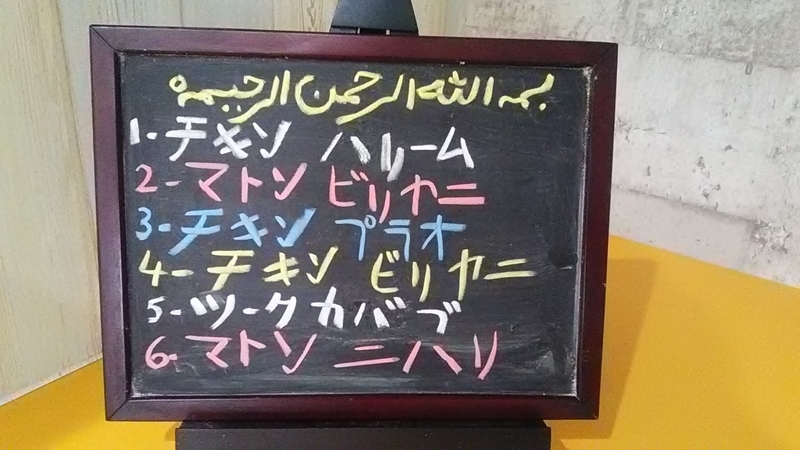 بسم الله الرحمن الرحيم
1-チキン ハリーム
2-マトン ビリヤニ
3-チキン プラオ
4-チキン ビリヤニ
5-シークカバブ
6-マトン ニハリ